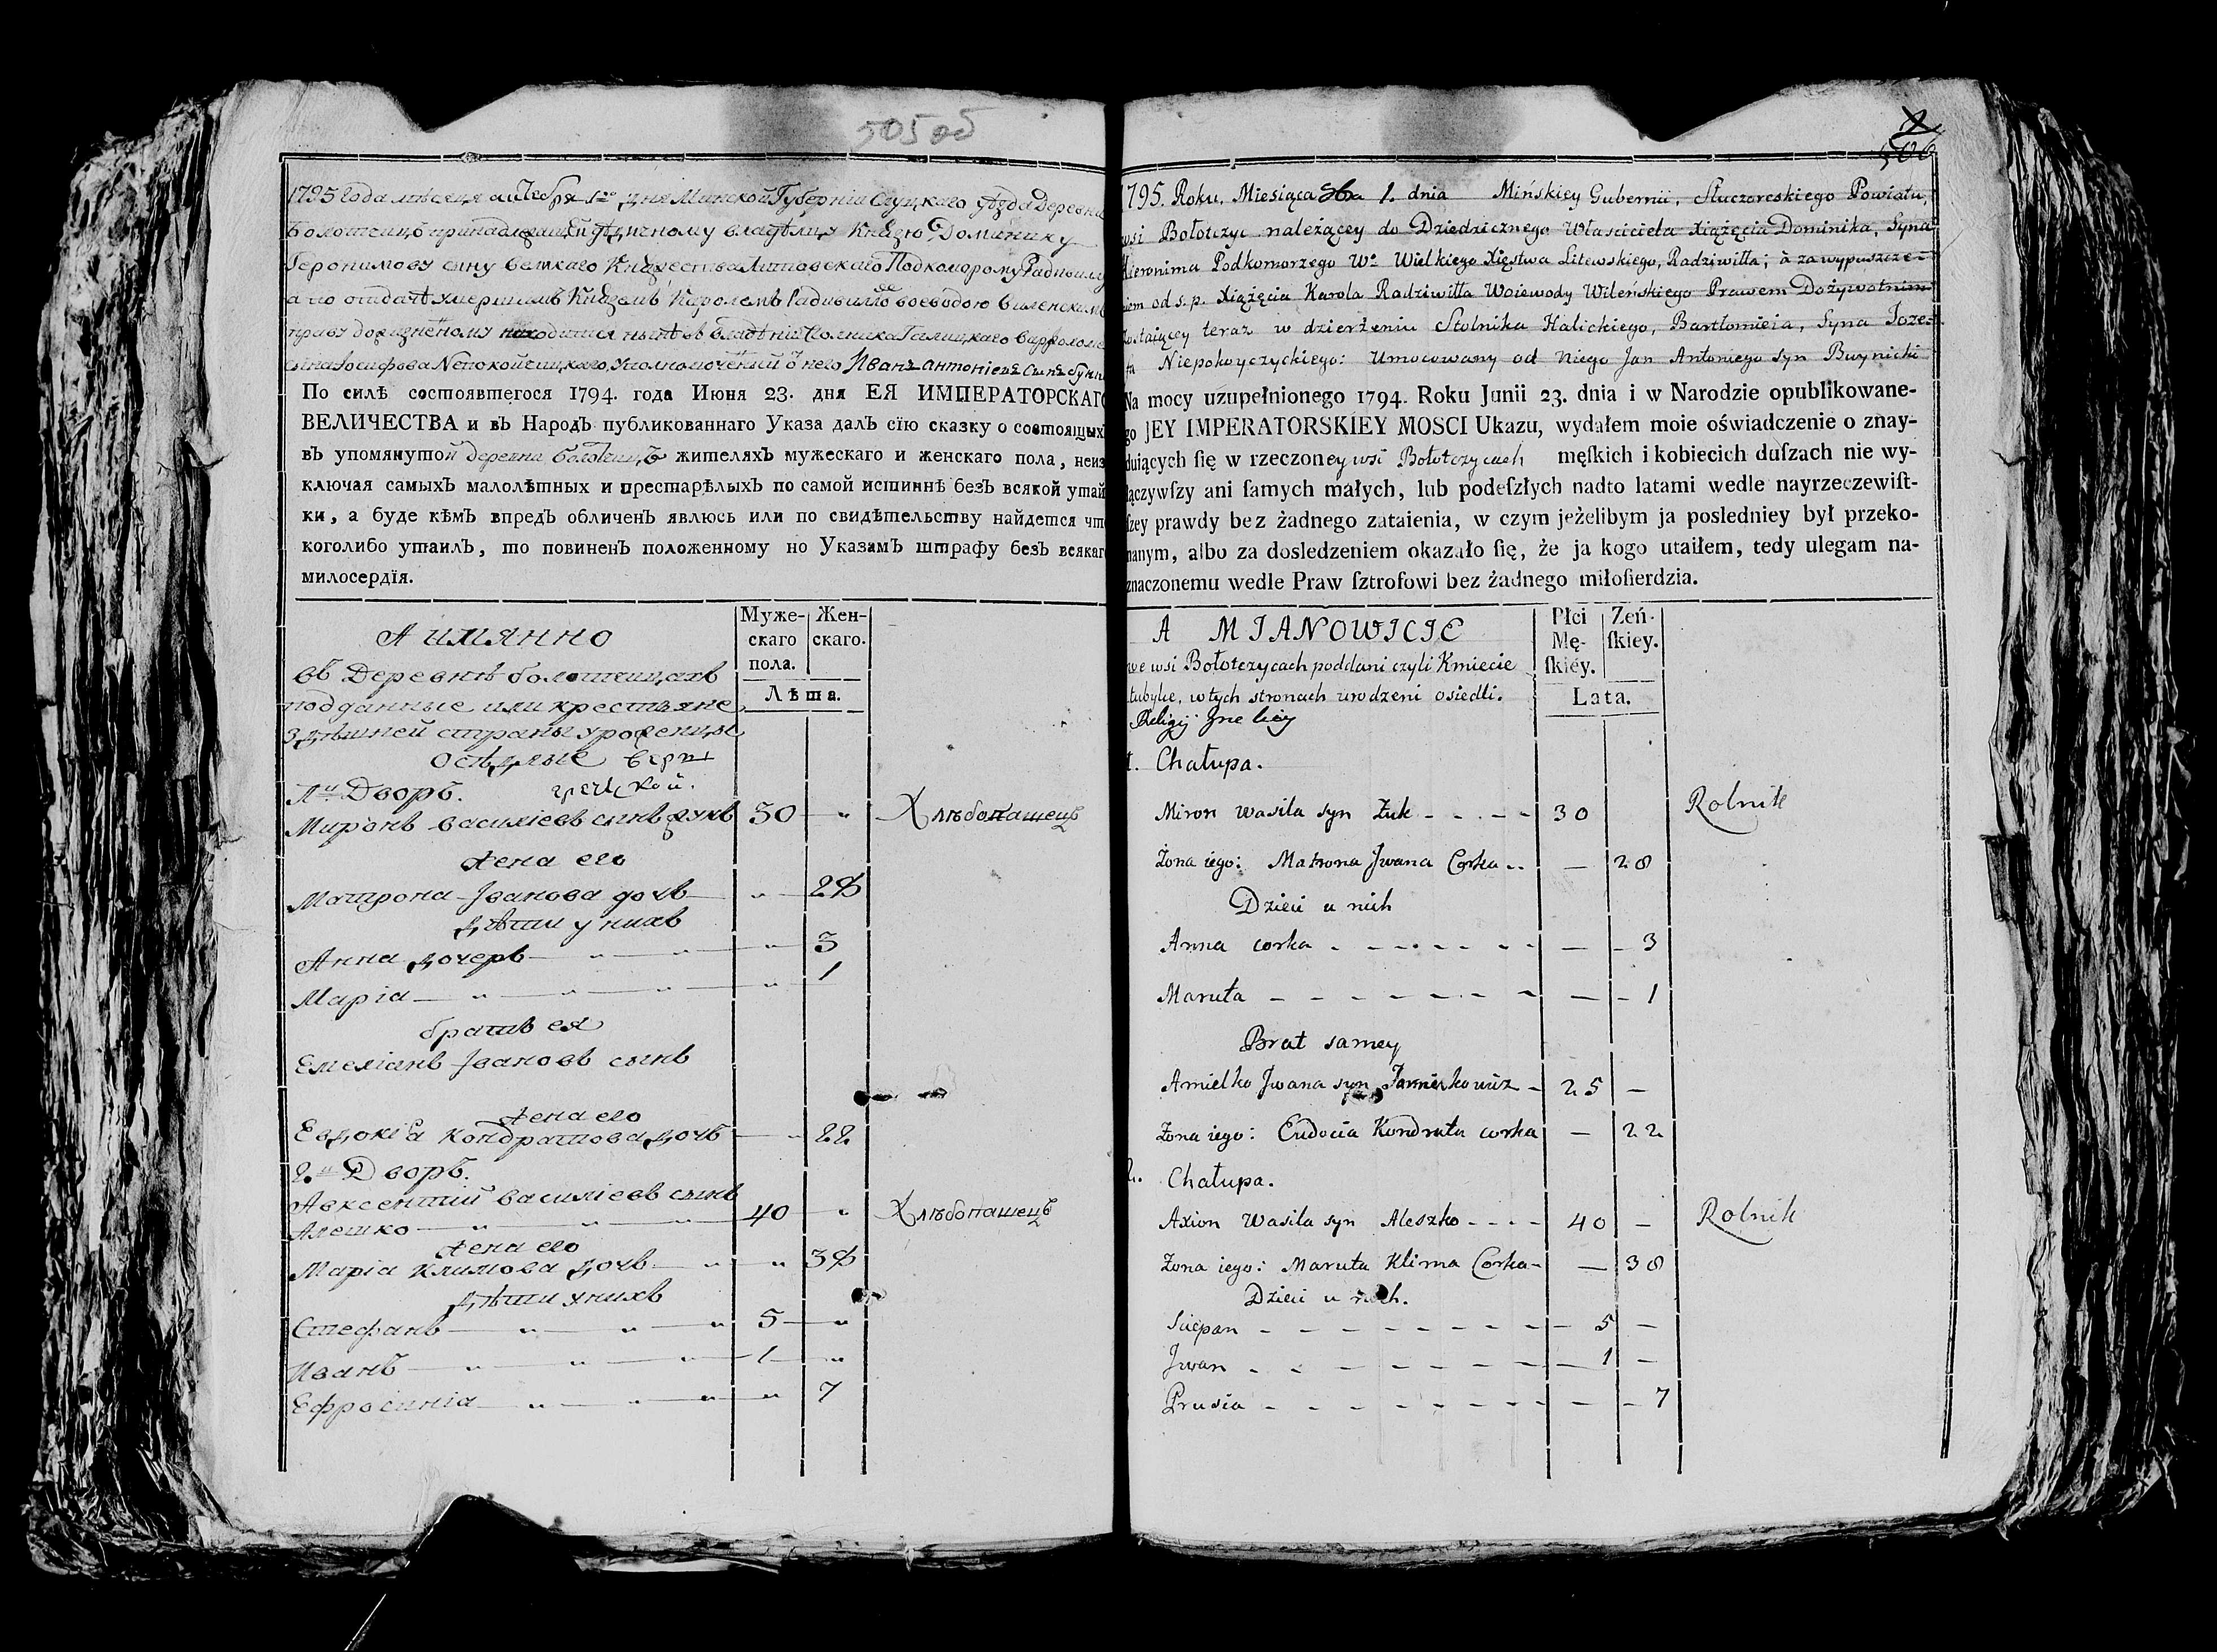 505 об
1795 года месяца октебря 1го дня Минской Губернiи Слуцкаго уѣзда Деревни
Болотчицъ принадлежащей дѣдичному владѣлцу Князю Доминику
Геронимову сыну великаго Княжества Литовскаго Подкоморому Радивилу
а по отдачѣ умершимъ Княземъ Каролемъ Радивилломъ воеводою виленскимъ
праву дожизненому находится нынѣ въ владѣнiи Столника Галицкаго варфоломея
сына Iосифова Непокойчицкаго, Уполномоченный о него Иванъ антонiевъ Сынъ
По силѣ состоявшегося 1794. года Июня 23. дня ЕЯ ИМПЕРАТОРСКАГО
ВЕЛИЧЕСТВА и въ Народъ публикованнаго Указа далъ сїю сказку о состоящихъ
въ упомянутой деревни болотчицъ жителяхъ мужескаго и женскаго пола, неиз
ключая самыхъ малолѣтных и престарѣлыхъ по самой истиннѣ безъ всякой утай
ки, а буде кѣмъ впредъ обличенъ явлюсь или по свидѣтельству найдется что
коголибо утаилъ, то повиненъ положенному по Указамъ штрафу безъ всякаго
милосердїя.
А имянно
Муже-
скаго
пола.
Жен-
скаго.
Лѣта.
въ Деревнѣ болотчицахъ
подданные или крестьяне
здѣшней страны уроженцы
осѣдлые веры
греческой.
1й Дворъ.
Миронъ василiевъ сынъ жукъ 30 — „ Хлѣбопашецъ
жена его
Матрона Iванова дочь „ 28
дѣти у нихъ
Анна дочерь „ 3
Марiа „ 1
братъ ея
Емелiанъ Iвановъ сынъ
жена его
Евдокiа Кондратова дочь „ 22
2й Дворъ.
Авксентий василиевъ сынъ
Алешко 40 „ Хлѣбопашецъ
жена его
Марiа Климова дочь „ 38
дѣти у нихъ
Стефанъ 5 „
Иванъ 1 „
Ефросинiа „ 7
506
1795. Roku, Miesiąca 8bra 1. dnia Mińskiey Gubernii, Słuczoreskiego Powiatu,
wsi Bołotczyc należącey do Dziedzicznego Własciciela Xiążęcia Dominika, Syna
Hieronima Podkomorzego Wo Wielkiego Xięstwa Litewskiego, Radziwiłła; à za wypuszcze-
niem od s. p. Xiążęcia Karola Radziwiłła Woiewody Wileńskiego Prawem Dożywotnim
zostaiącey teraz w dzierżeniu Stolnika Halickiego, Bartłomieia, Syna Joze-
fa Niepokoyczyckiego: Umocowany od niego Jan Antoniego syn Buynicki
Na mocy uzupełnionego 1794. Roku Junii 23. dnia i w Narodzie opublikowane-
go JEY IMPERATORSKIEY MOSCI Ukazu, wydałem moie oświadczenie o znay-
duiących ſię w rzeczoney wsi Bołotczycach męſkich i kobiecich duſzach nie wy-
łączywſzy ani ſamych małych, lub podeſzłych nadto latami wedle nayrzeczewiſt-
ſzey prawdy bez żadnego zataienia, w czym jeżelibym ja posledniey był przeko-
nanym, albo za dosledzeniem okazało ſię, że ja kogo utaiłem, tedy ulegam na-
znaczonemu wedle Praw ſztrofowi bez żadnego miłoſierdzia.
A MIANOWICIE
Płci
Mę-
ſkiey.
Zeń-
ſkiey.
Lata.
we wsi Bołotczycach poddani czyli Kmiecie
tubylce, w tych stronach urodzeni osiedli.
Religij Greckiey
1. Chałupa.
Miron Wasila syn Żuk 30 Rolnik
Żona iego: Matrona Jwana Corka — 28
Dzieci u nich
Anna corka — 3
Maruta — 1
Brat samey
Amielko Jwana syn Jarmierkowicz 25 —
Żona iego: Eudocia Kondrata corka — 22
2. Chałupa.
Axion Wasila syn Aleszko 40 — Rolnik
Żona iego: Maruta Klima Corka — 38
Dzieci u nich.
Sciepan 5 —
Jwan 1 —
Prusia — 7